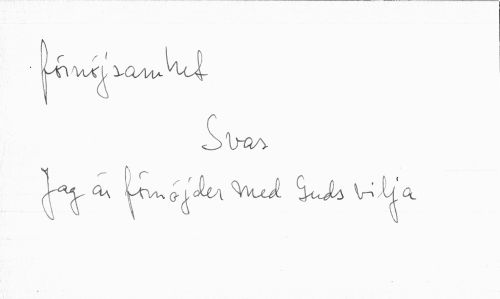 förnöjsamhet
Svar
Jag är förnöjder med Guds vilja